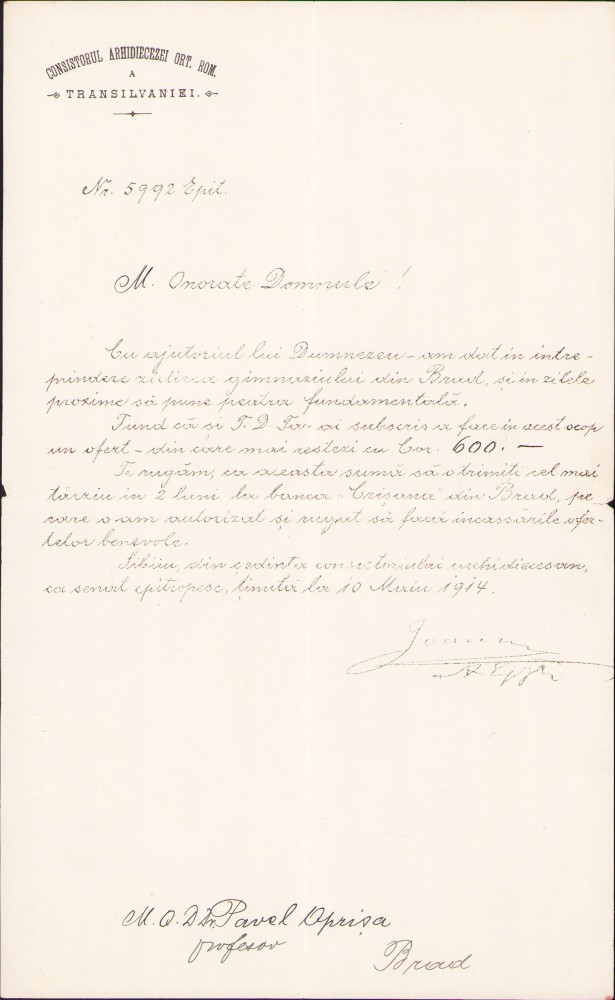 CONSISTORUL ARHIDIECEZEI ORT. ROM.
A
TRANSILVANIEI.
Nr. 5992 Epit.
M. Onorate Domnule!
Cu ajutoriul lui Dumnezeu - am dat in intre-
prindere zidirea gimnaziului din Brad, și in zilele
proxime să pune peatra fundamentală.
Fiind că și T. D. Ta - ai subscris a face in acest scop
un ofert - din care mai restezi cu Cor. 600. -
Te rugăm, ca aceasta sumă să o trimiti cel mai
târziu in 2 luni la banca "Crișana" din Brad, pe
care o am autorizat și rugat să facă incassările ofer-
telor benevole.
Sibiiu, din ședinta consistoriului archidiecesan,
ca senat epitropesc, ținută la 10 Maiu 1914.
Ioan
M. O. D Dr. Pavel Oprișa
profesor
Brad